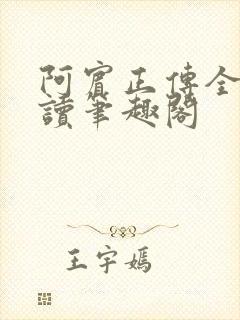 阿賓正傳全
讀筆趣閣
王宇嫣